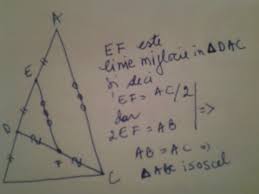 A
E
D
F
C
EF este
linie mijlocie in ΔDAC
și deci
EF = AC/2
dar
2EF = AB
|=>
AB = AC =>
ΔABC isoscel